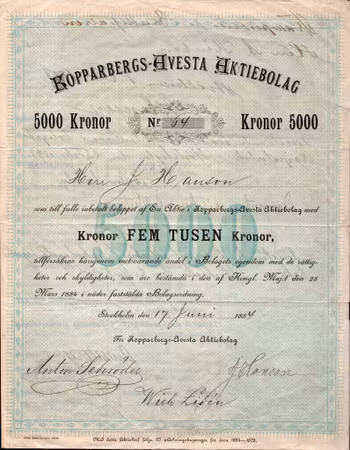 KOPPARBERGS-AVESTA AKTIEBOLAG
5000 Kronor Nr 64 Kronor 5000
Herr J. Hanson
som till fullo inbetalt beloppet af En Aktie i Kopparbergs-Avesta Aktiebolag med
Kronor FEM TUSEN Kronor,
tillförsäkras härigenom motsvarande andel i Bolagets egendom med de rättig-
heter och skyldigheter, som äro bestämda i den af Kongl. Maj:t den 28
Mars 1884 i nåder fastställda Bolagsordning.
Stockholm den 17 Juni 1884
För Kopparbergs-Avesta Aktiebolag
Anton Schröder J Hanson
Wilh Lidén
(Med detta Aktiebref följa 20 utdelningskuponger för åren 1884-1903.